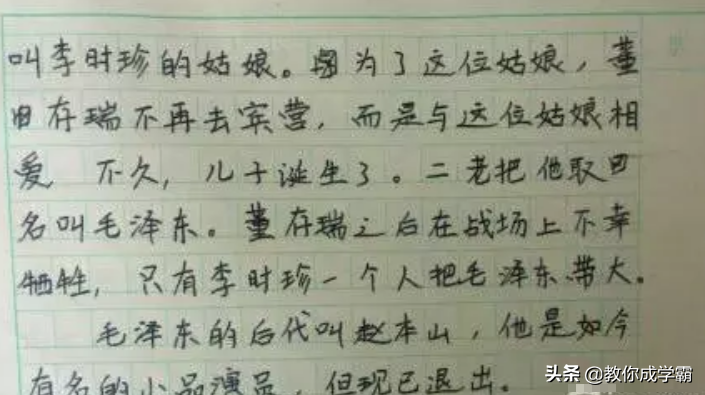 叫李时珍的姑娘。因为了这位姑娘,董
存瑞不再去宾营,而是与这位姑娘相
爱 不久,儿子诞生了。二老把他取
名叫毛泽东。董存瑞之后在战场上不幸
牺牲,只有李时珍一个人把毛泽东带大。
毛泽东的后代叫赵本山,他是如今
有名的小品演员,但现已退出。
头条 @教你成学霸